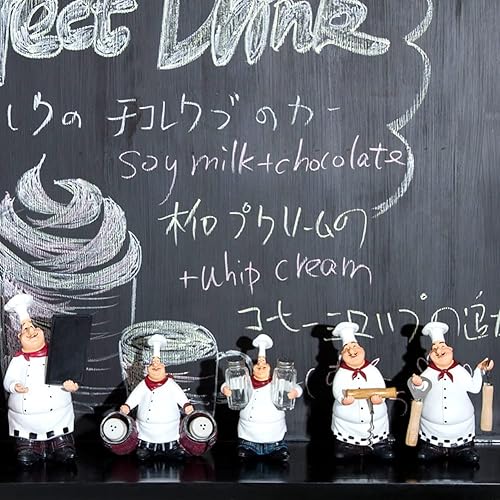 ect Drink
レクの チコレクブのカー
soy milk+chocolate
プクリームの
+whip cream
コーヒーニロハプの追